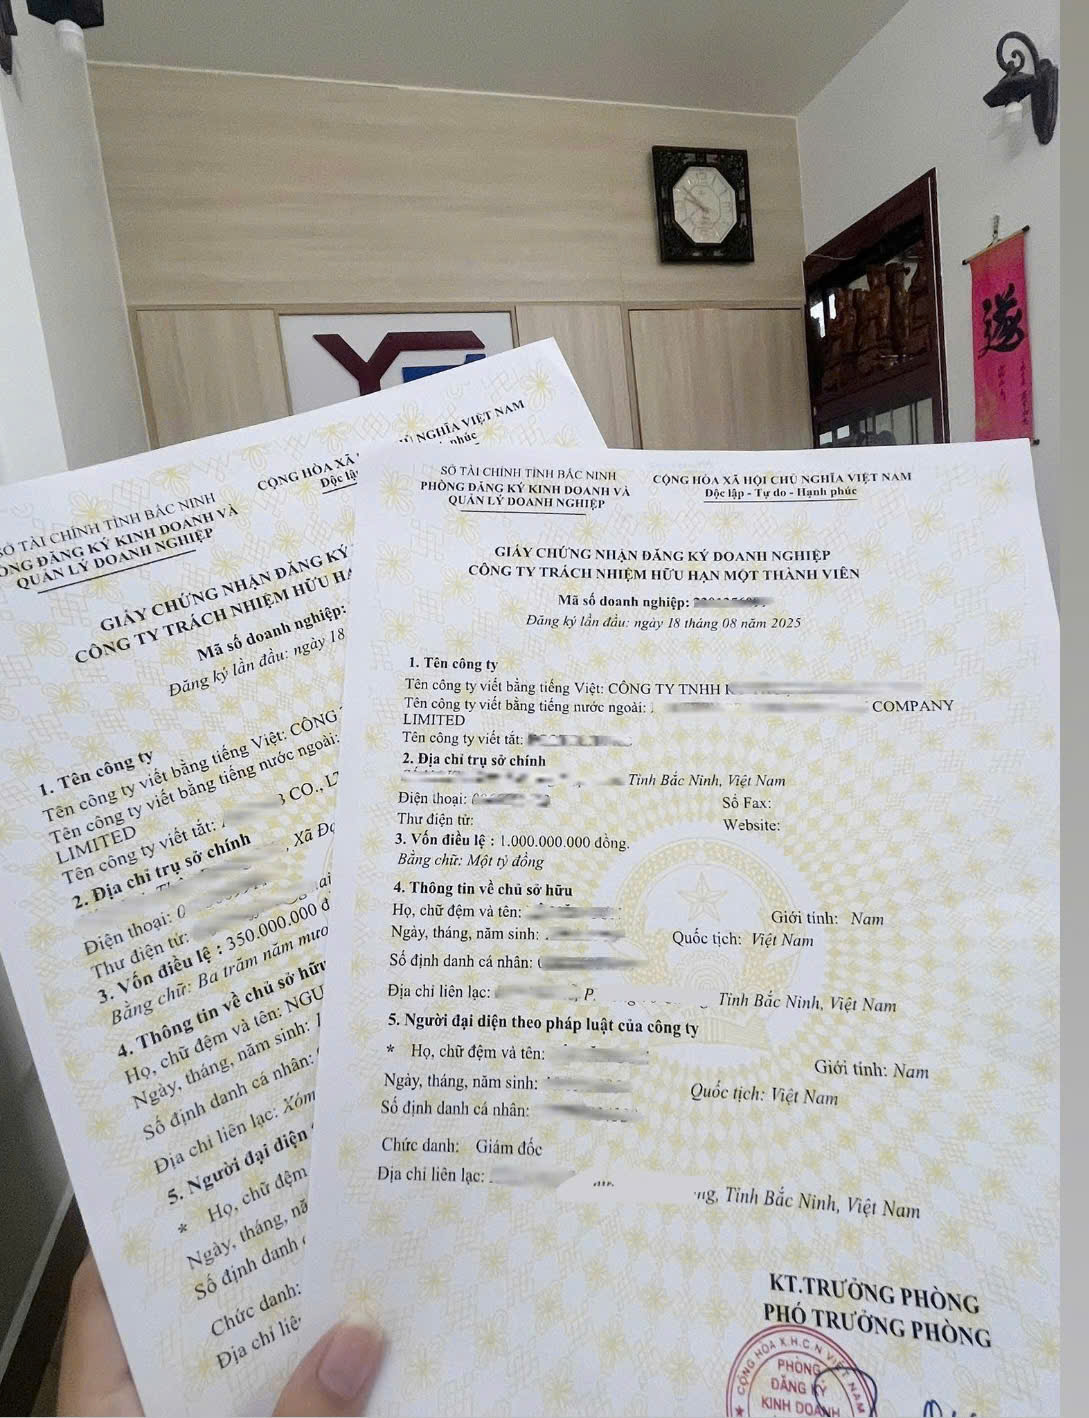 SỞ TÀI CHÍNH TỈNH BẮC NINH
PHÒNG ĐĂNG KÝ KINH DOANH VÀ
QUẢN LÝ DOANH NGHIỆP
CỘNG HÒA XÃ HỘI CHỦ NGHĨA VIỆT NAM
Độc lập - Tự do - Hạnh phúc
GIẤY CHỨNG NHẬN ĐĂNG KÝ DOANH NGHIỆP
CÔNG TY TRÁCH NHIỆM HỮU HẠN MỘT THÀNH VIÊN
Mã số doanh nghiệp:
Đăng ký lần đầu: ngày 18 tháng 08 năm 2025
1. Tên công ty
Tên công ty viết bằng tiếng Việt: CÔNG TY TNHH
Tên công ty viết bằng tiếng nước ngoài: COMPANY
LIMITED
Tên công ty viết tắt:
2. Địa chỉ trụ sở chính
Tỉnh Bắc Ninh, Việt Nam
Điện thoại: Số Fax:
Thư điện tử: Website:
3. Vốn điều lệ : 1.000.000.000 đồng.
Bằng chữ: Một tỷ đồng
4. Thông tin về chủ sở hữu
Họ, chữ đệm và tên: Giới tính: Nam
Ngày, tháng, năm sinh: Quốc tịch: Việt Nam
Số định danh cá nhân:
Địa chỉ liên lạc: Tỉnh Bắc Ninh, Việt Nam
5. Người đại diện theo pháp luật của công ty
* Họ, chữ đệm và tên: Giới tính: Nam
Ngày, tháng, năm sinh: Quốc tịch: Việt Nam
Số định danh cá nhân:
Chức danh: Giám đốc
Địa chỉ liên lạc: Tỉnh Bắc Ninh, Việt Nam
KT.TRƯỞNG PHÒNG
PHÓ TRƯỞNG PHÒNG
CỘNG HÒA X.H.C.N VIỆT NAM
PHÒNG
ĐĂNG KÝ
KINH DOANH
SỞ TÀI CHÍNH TỈNH BẮC NINH
PHÒNG ĐĂNG KÝ KINH DOANH VÀ
QUẢN LÝ DOANH NGHIỆP
CỘNG HÒA XÃ CHỦ NGHĨA VIỆT NAM
Độc lập phúc
GIẤY CHỨNG NHẬN ĐĂNG KÝ
CÔNG TY TRÁCH NHIỆM HỮU HẠ
Mã số doanh nghiệp:
Đăng ký lần đầu: ngày 18
1. Tên công ty
Tên công ty viết bằng tiếng Việt: CÔNG
Tên công ty viết bằng tiếng nước ngoài:
LIMITED
Tên công ty viết tắt: CO., L
2. Địa chỉ trụ sở chính
, Xã
Điện thoại: 0
Thư điện tử:
3. Vốn điều lệ : 350.000.000 đ
Bằng chữ: Ba trăm năm mươ
4. Thông tin về chủ sở hữu
Họ, chữ đệm và tên: NGU
Ngày, tháng, năm sinh: 1
Số định danh cá nhân:
Địa chỉ liên lạc: Xóm
5. Người đại diện
* Họ, chữ đệm
Ngày, tháng, nă
Số định danh
Chức danh:
Địa chỉ liê